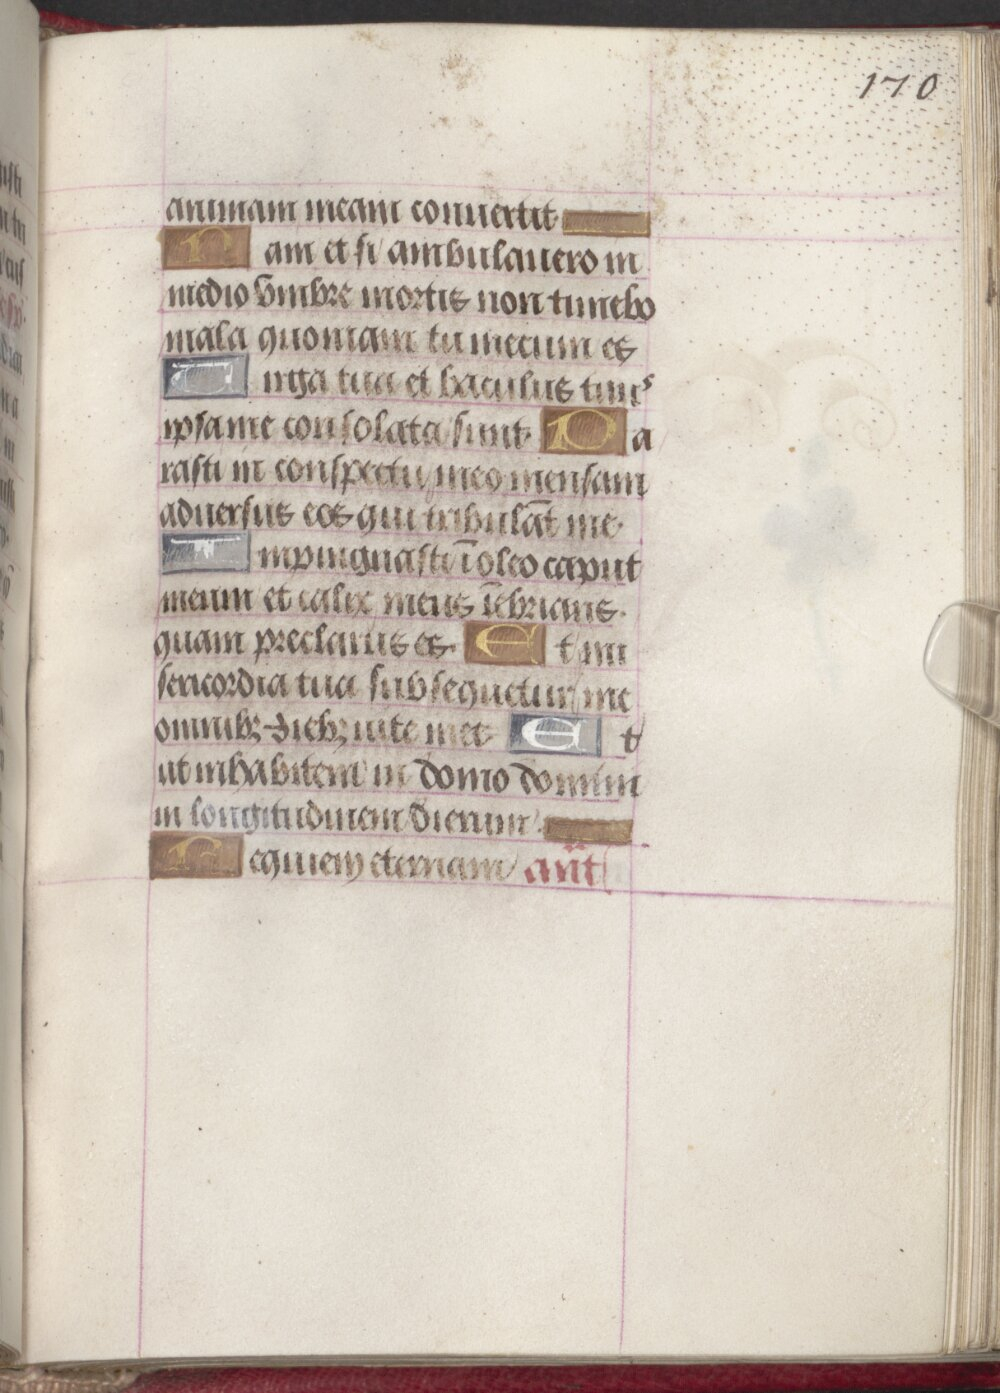 170
animam meam conuertit
Nam et si ambulauero in
medio vmbre mortis non timebo
mala quoniam tu mecum es
Uirga tua et baculus tuus
ipsa me consolata sunt Pa
rasti in conspectu meo mensam
aduersus eos qui tribulāt me.
Impinguasti ī oleo caput
meum et calix meus īebrians.
quam preclarus es. Et mi
sericordia tua subsequetur me
omnibꝫ diebꝫ uite mee Et
ut inhabitem in domo domini
in longitudinem dierum.
Requiem eternam añt